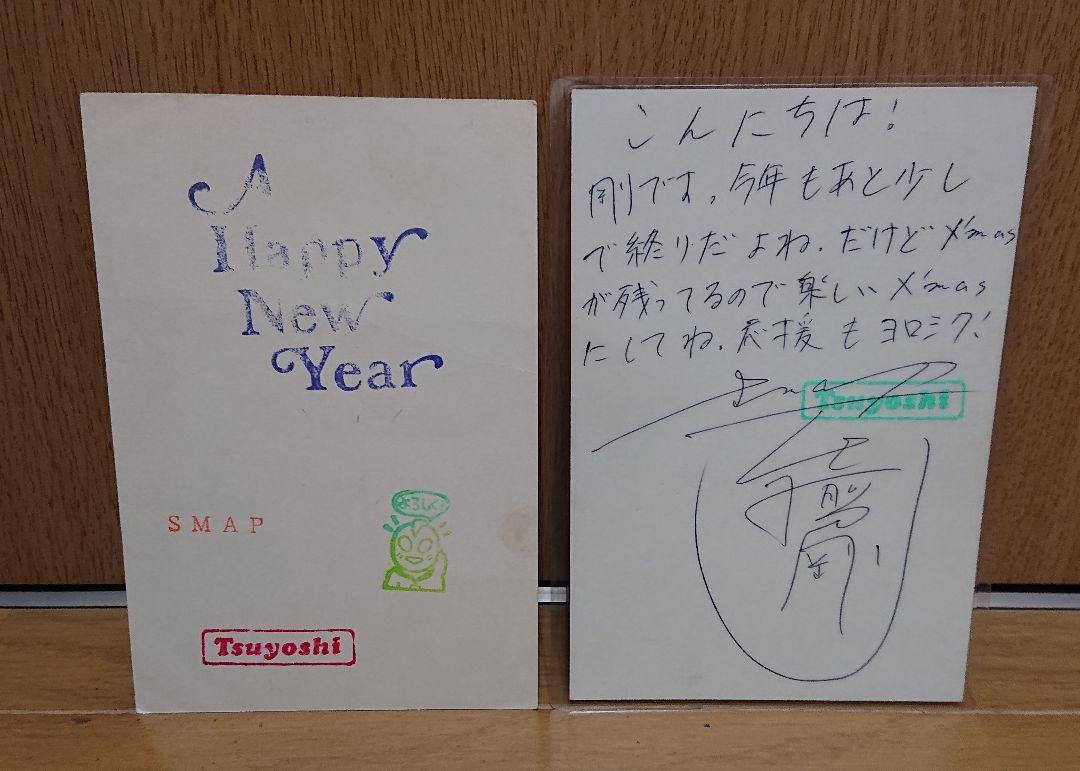 A
Happy
New
Year
SMAP
よろしく!
Tsuyoshi
こんにちは!
剛です。今年もあと少し
で終りだよね。だけどX'mas
が残ってるので楽しいX'mas
にしてね。応援もヨロシク!
Tsuyoshi
剛